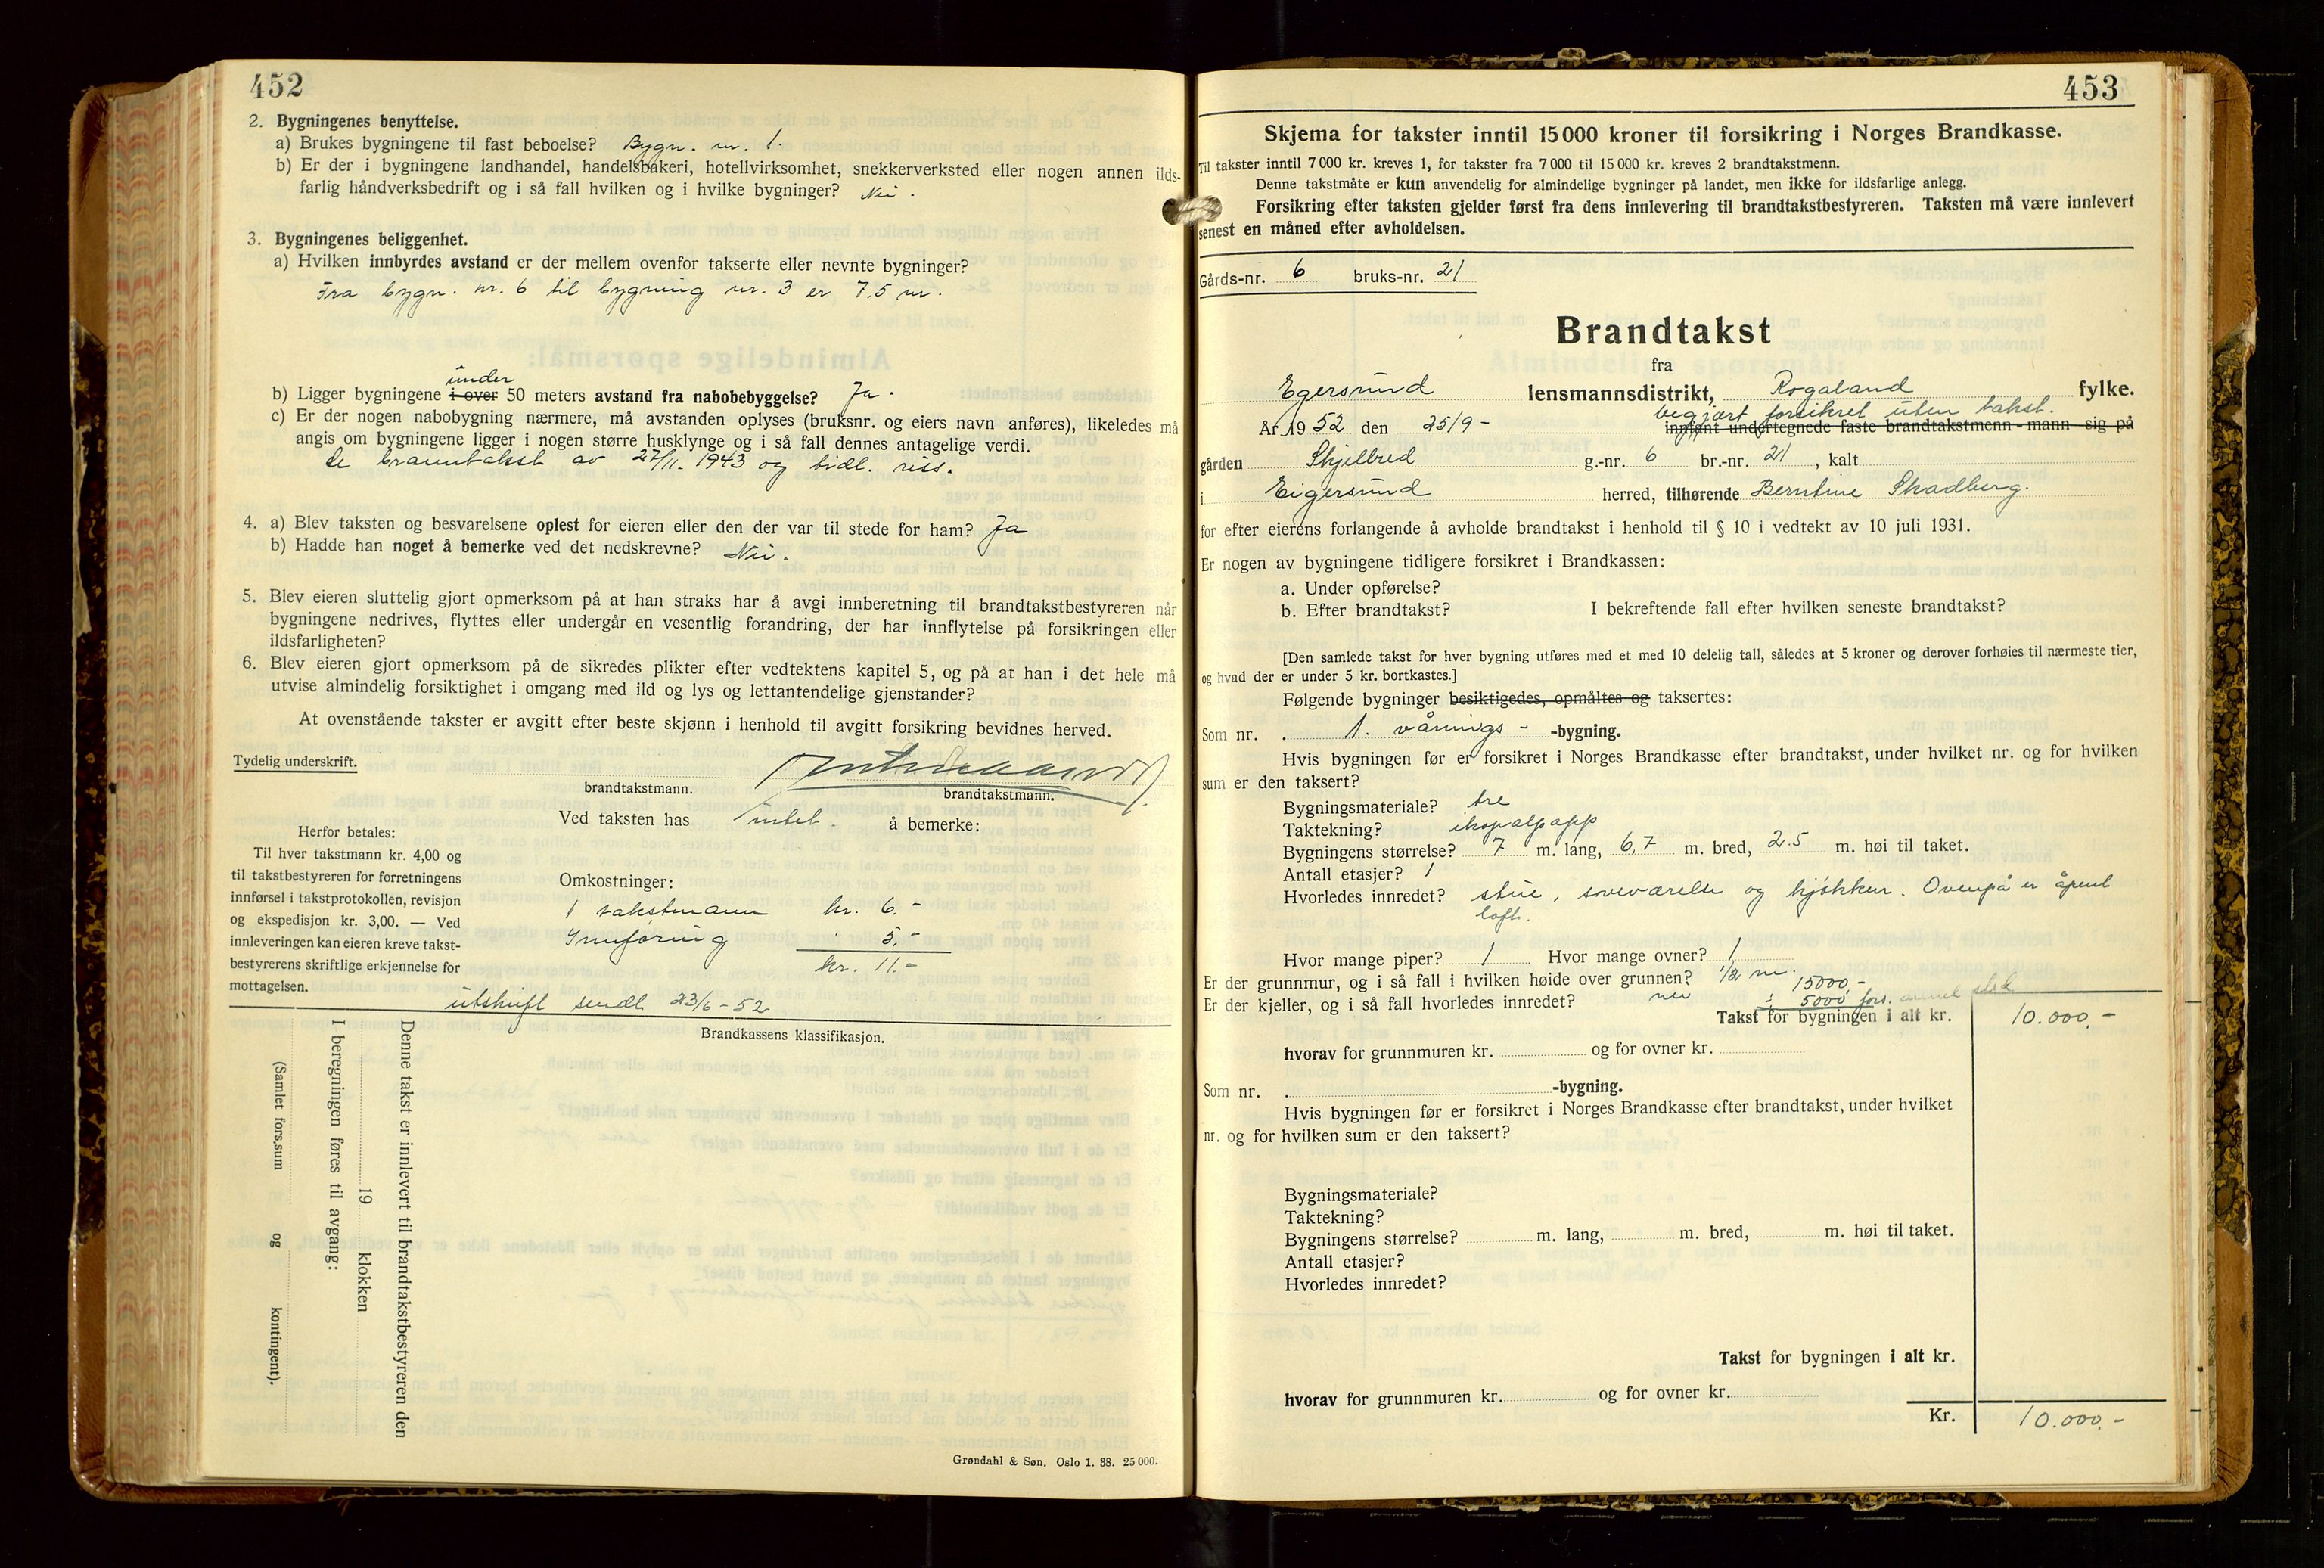 452
2. Bygningenes benyttelse.
a) Brukes bygningene til fast beboelse? Bygn. nr. 1.
b) Er der i bygningene landhandel, handelsbakeri, hotellvirksomhet, snekkerverksted eller nogen annen ilds-
farlig håndverksbedrift og i så fall hvilken og i hvilke bygninger? Nei.
3. Bygningenes beliggenhet.
a) Hvilken innbyrdes avstand er der mellem ovenfor takserte eller nevnte bygninger?
Fra bygn. nr. 6 til bygning nr. 3 er 7,5 m.
under
b) Ligger bygningene i over 50 meters avstand fra nabobebyggelse? Ja.
c) Er der nogen nabobygning nærmere, må avstanden oplyses (bruksnr. og eiers navn anføres), likeledes må
angis om bygningene ligger i nogen større husklynge og i så fall dennes antagelige verdi.
Se branntakst av 27/11. 1943 og tidl. riss.
4. a) Blev taksten og besvarelsene oplest for eieren eller den der var til stede for ham? Ja
b) Hadde han noget å bemerke ved det nedskrevne? Nei.
5. Blev eieren sluttelig gjort opmerksom på at han straks har å avgi innberetning til brandtakstbestyreren når
bygningene nedrives, flyttes eller undergår en vesentlig forandring, der har innflytelse på forsikringen eller
ildsfarligheten?
6. Blev eieren gjort opmerksom på de sikredes plikter efter vedtektens kapitel 5, og på at han i det hele må
utvise almindelig forsiktighet i omgang med ild og lys og lettantendelige gjenstander?
At ovenstående takster er avgitt efter beste skjønn i henhold til avgitt forsikring bevidnes herved.
Tydelig underskrift.
brandtakstmann. brandtakstmann.
Ved taksten has intet. å bemerke:
Herfor betales:
Til hver takstmann kr. 4,00 og
til takstbestyreren for forretningens
innførsel i takstprotokollen, revisjon
og ekspedisjon kr. 3,00. — Ved
innleveringen kan eieren kreve takst-
bestyrerens skriftlige erkjennelse for
mottagelsen.
Omkostninger:
1 takstmann kr. 6.-
Innføring 5,-
kr. 11.-
utskrift sendt 23/6-52
Brandkassens klassifikasjon.
Denne takst er innlevert til brandtakstbestyreren den
19 klokken
I beregningen føres til avgang:
(Samlet fors.sum og kontingent).
Grøndahl & Søn. Oslo 1. 38. 25 000.
453
Skjema for takster inntil 15 000 kroner til forsikring i Norges Brandkasse.
Til takster inntil 7 000 kr. kreves 1, for takster fra 7 000 til 15 000 kr. kreves 2 brandtakstmenn.
Denne takstmåte er kun anvendelig for almindelige bygninger på landet, men ikke for ildsfarlige anlegg.
Forsikring efter taksten gjelder først fra dens innlevering til brandtakstbestyreren. Taksten må være innlevert
senest en måned efter avholdelsen.
Gårds-nr. 6 bruks-nr. 21
Brandtakst
fra
Egersund lensmannsdistrikt, Rogaland fylke.
begjært forsikret uten takst.
År 19 52 den 25/9- innfant undertegnede faste brandtakstmenn - mann sig på
gården Skjelbred g.-nr. 6 br.-nr. 21, kalt
i Eigersund herred, tilhørende Berntine Skadberg.
for efter eierens forlangende å avholde brandtakst i henhold til § 10 i vedtekt av 10 juli 1931.
Er nogen av bygningene tidligere forsikret i Brandkassen:
a. Under opførelse?
b. Efter brandtakst? I bekreftende fall efter hvilken seneste brandtakst?
[Den samlede takst for hver bygning utføres med et med 10 delelig tall, således at 5 kroner og derover forhøies til nærmeste tier,
og hvad der er under 5 kr. bortkastes.]
Følgende bygninger besiktigedes, opmåltes og taksertes:
Som nr. 1. vånings- -bygning.
Hvis bygningen før er forsikret i Norges Brandkasse efter brandtakst, under hvilket nr. og for hvilken
sum er den taksert?
Bygningsmateriale? tre
Taktekning? ikopalpapp
Bygningens størrelse? 7 m. lang, 6,7 m. bred, 2.5 m. høi til taket.
Antall etasjer? 1
Hvorledes innredet? stue, soveværelse og kjøkken. Ovenpå er åpent
loft.
Hvor mange piper? 1 Hvor mange ovner? 1
Er der grunnmur, og i så fall i hvilken høide over grunnen? 1/2 m. 15000,-
Er der kjeller, og i så fall hvorledes innredet? nei ÷ 5000, fors. annet sted
Takst for bygningen i alt kr. 10.000,-
hvorav for grunnmuren kr. og for ovner kr.
Som nr. -bygning.
Hvis bygningen før er forsikret i Norges Brandkasse efter brandtakst, under hvilket
nr. og for hvilken sum er den taksert?
Bygningsmateriale?
Taktekning?
Bygningens størrelse? m. lang, m. bred, m. høi til taket.
Antall etasjer?
Hvorledes innredet?
Takst for bygningen i alt kr.
hvorav for grunnmuren kr. og for ovner kr.
Kr. 10.000,-